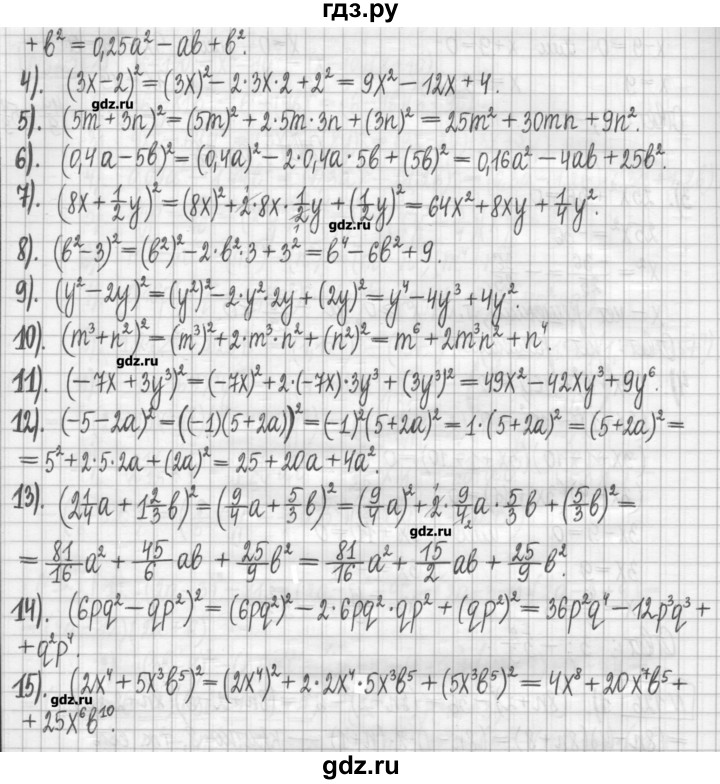 гдз.ру
+ b² = 0,25a² − ab + b².
4). (3x − 2)² = (3x)² − 2·3x·2 + 2² = 9x² − 12x + 4.
gdz.ru
5). (5m + 3n)² = (5m)² + 2·5m·3n + (3n)² = 25m² + 30mn + 9n².
6). (0,4a − 5b)² = (0,4a)² − 2·0,4a·5b + (5b)² = 0,16a² − 4ab + 25b².
7). (8x + 1/2 y)² = (8x)² + 2·8x·1/2 y + (1/2 y)² = 64x² + 8xy + 1/4 y².
gdz.ru
8). (b² − 3)² = (b²)² − 2·b²·3 + 3² = b⁴ − 6b² + 9.
9). (y² − 2y)² = (y²)² − 2·y²·2y + (2y)² = y⁴ − 4y³ + 4y².
10). (m³ + n²)² = (m³)² + 2·m³·n² + (n²)² = m⁶ + 2m³n² + n⁴.
gdz.ru
11). (−7x + 3y³)² = (−7x)² + 2·(−7x)·3y³ + (3y³)² = 49x² − 42xy³ + 9y⁶.
12). (−5 − 2a)² = ((−1)(5 + 2a))² = (−1)²(5 + 2a)² = 1·(5 + 2a)² = (5 + 2a)² =
= 5² + 2·5·2a + (2a)² = 25 + 20a + 4a².
13). (2 1/4 a + 1 2/3 b)² = (9/4 a + 5/3 b)² = (9/4 a)² + 2·9/4 a·5/3 b + (5/3 b)² =
gdz.ru
= 81/16 a² + 45/6 ab + 25/9 b² = 81/16 a² + 15/2 ab + 25/9 b².
14). (6pq² − qp²)² = (6pq²)² − 2·6pq²·qp² + (qp²)² = 36p²q⁴ − 12p³q³ +
+ q²p⁴.
15). (2x⁴ + 5x³b⁵)² = (2x⁴)² + 2·2x⁴·5x³b⁵ + (5x³b⁵)² = 4x⁸ + 20x⁷b⁵ +
gdz.ru
+ 25x⁶b¹⁰.
gdz.ru